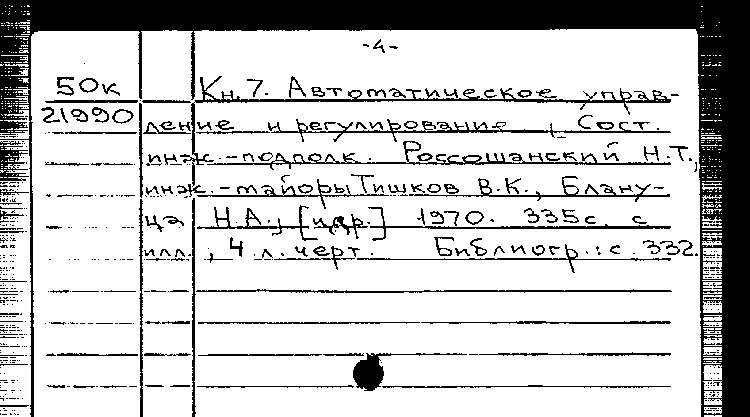 -4-
50к Кн.7. Автоматическое управ-
21990 ление и регулирование [Сост.
инж.-подполк. Россошанский Н.Т.,
инж.-майоры Тишков В.К., Блану-
ца Н.А., [и др.] 1970. 335с. с
илл., 4 л. черт. Библиогр.: с. 332.